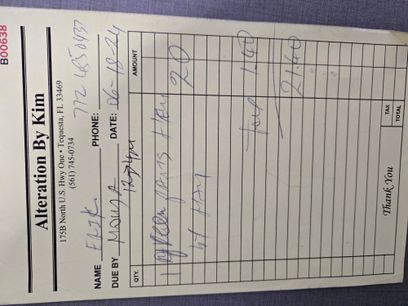 B00638
Alteration By Kim
175B North U.S. Hwy One • Tequesta, FL 33469
(561) 745-0734
NAME PHONE: 772 485 0437
DUE BY DATE: 06-18-24
QTY. AMOUNT
1 Jeans Hem 20
W
Tax 1.40
21.40
TAX
Thank You TOTAL